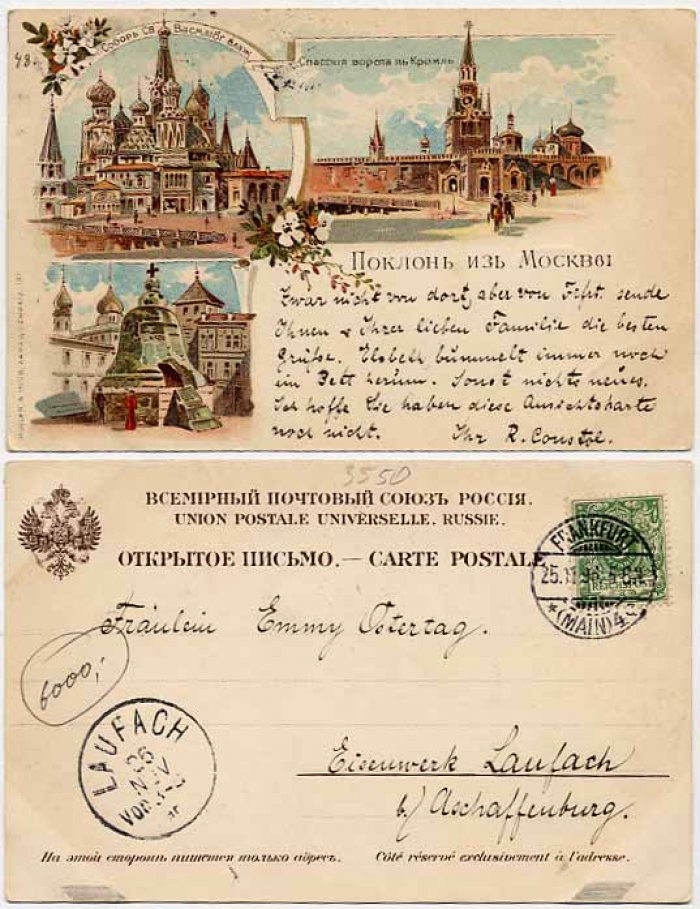 48.
Соборъ Св. Василія Блаж.
Спасскія ворота въ Кремлѣ
Поклонъ изъ Москвы
Zwar nicht von dort, aber von Fkft. sende
Ihnen & Ihrer lieben Familie die besten
Grüße. Elsbeth bummelt immer noch
im Bett herum. Sonst nichts neues.
Ich hoffe Sie haben diese Ansichtskarte
noch nicht. Ihr R.
3550
ВСЕМІРНЫЙ ПОЧТОВЫЙ СОЮЗЪ РОССІЯ.
UNION POSTALE UNIVERSELLE. RUSSIE.
ОТКРЫТОЕ ПИСЬМО.—CARTE POSTALE
FRANKFURT
25.11.
*(MAIN)4
Fräulein Emmy Ostertag.
6000,-
LAUFACH
26
NOV
VOR
Eisenwerk Laufach
b/ Aschaffenburg.
На этой сторонѣ пишется только адресъ. Côté réservé exclusivement à l'adresse.